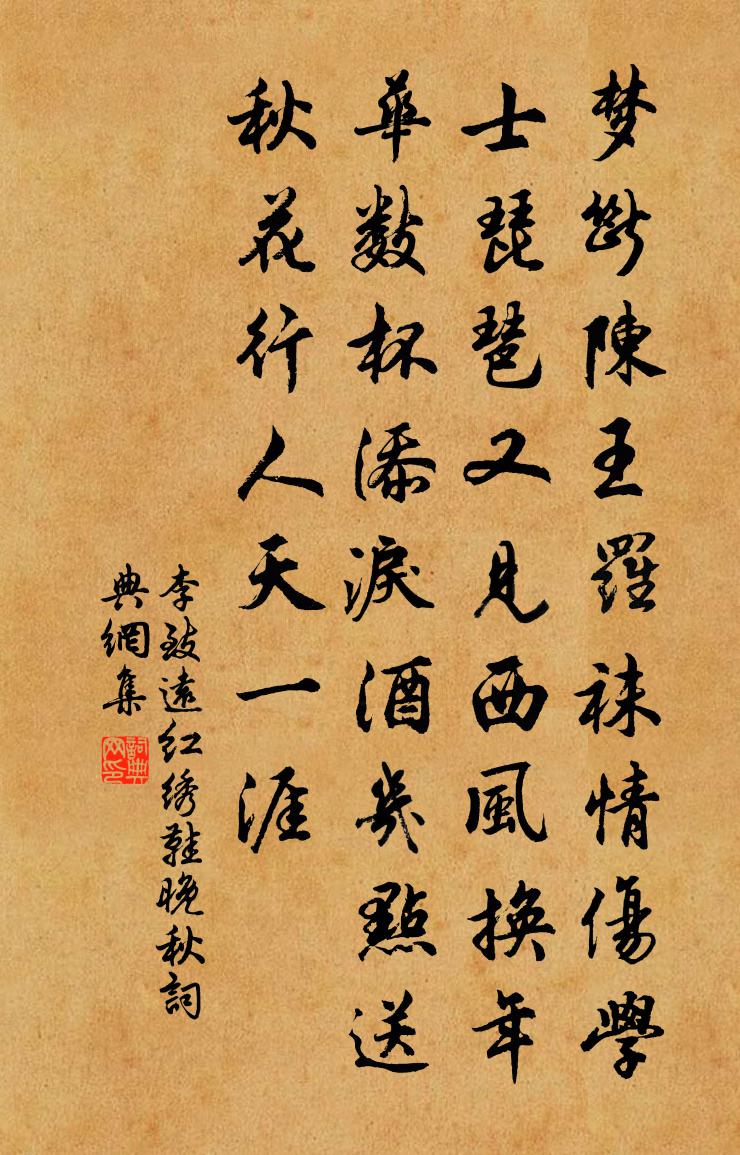 梦斷陳王羅袜情傷學
士琵琶又見西風換年
華數杯添淚酒幾點送
秋花行人天一涯
李致遠红绣鞋晚秋詞
典網集
詞典网印